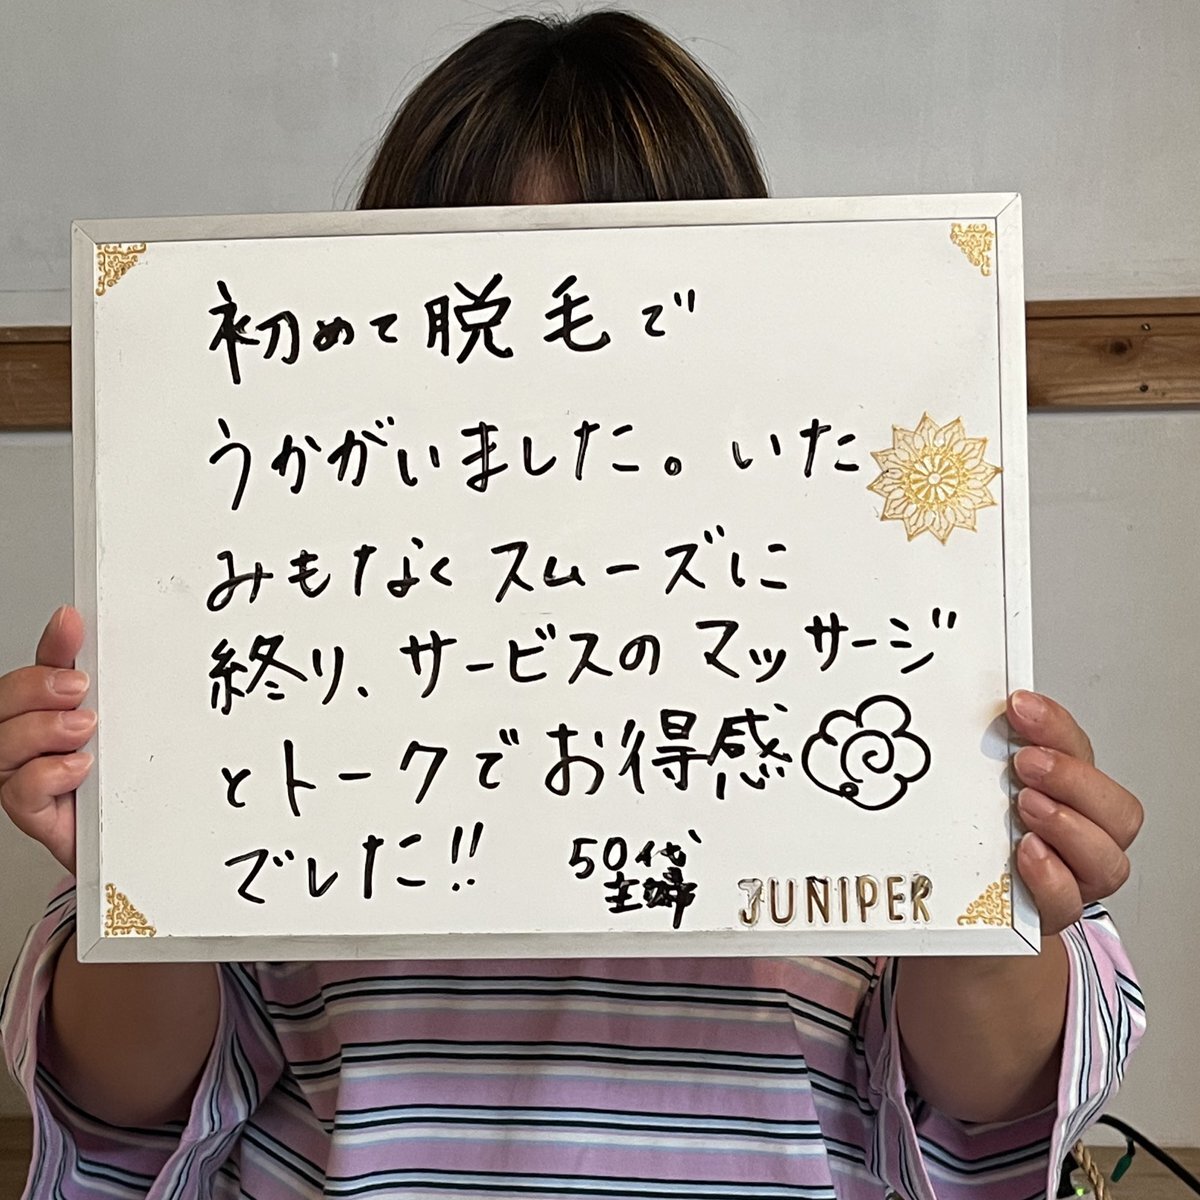 初めて脱毛で
うかがいました。いた
みもなくスムーズに
終り、サービスのマッサージ
とトークでお得感
でした!!
50代
主婦
JUNIPER